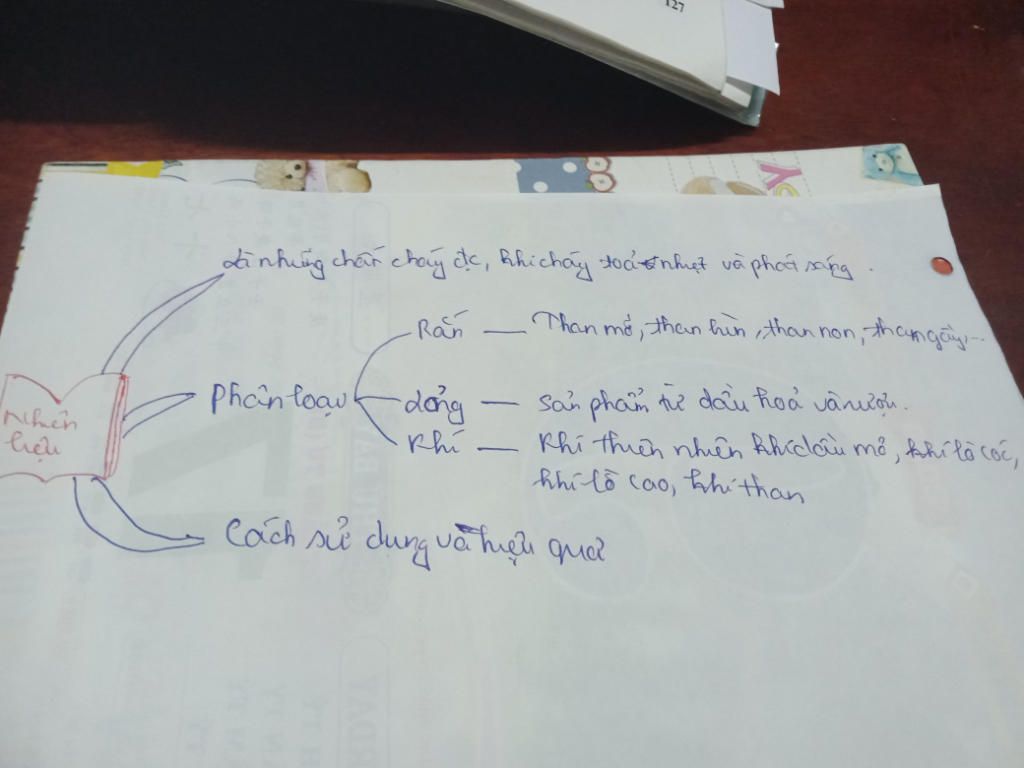 127
là những chất cháy đc, khi cháy toả nhiệt và phát sáng.
Rắn — Than mỏ, than bùn, than non, than gầy,...
Nhiên
liệu
Phân loại
lỏng — sản phẩm từ dầu hoả và rượu.
Khí — Khí thiên nhiên khí dầu mỏ, khí lò cốc,
khí lò cao, khí than
Cách sử dụng và hiệu quả